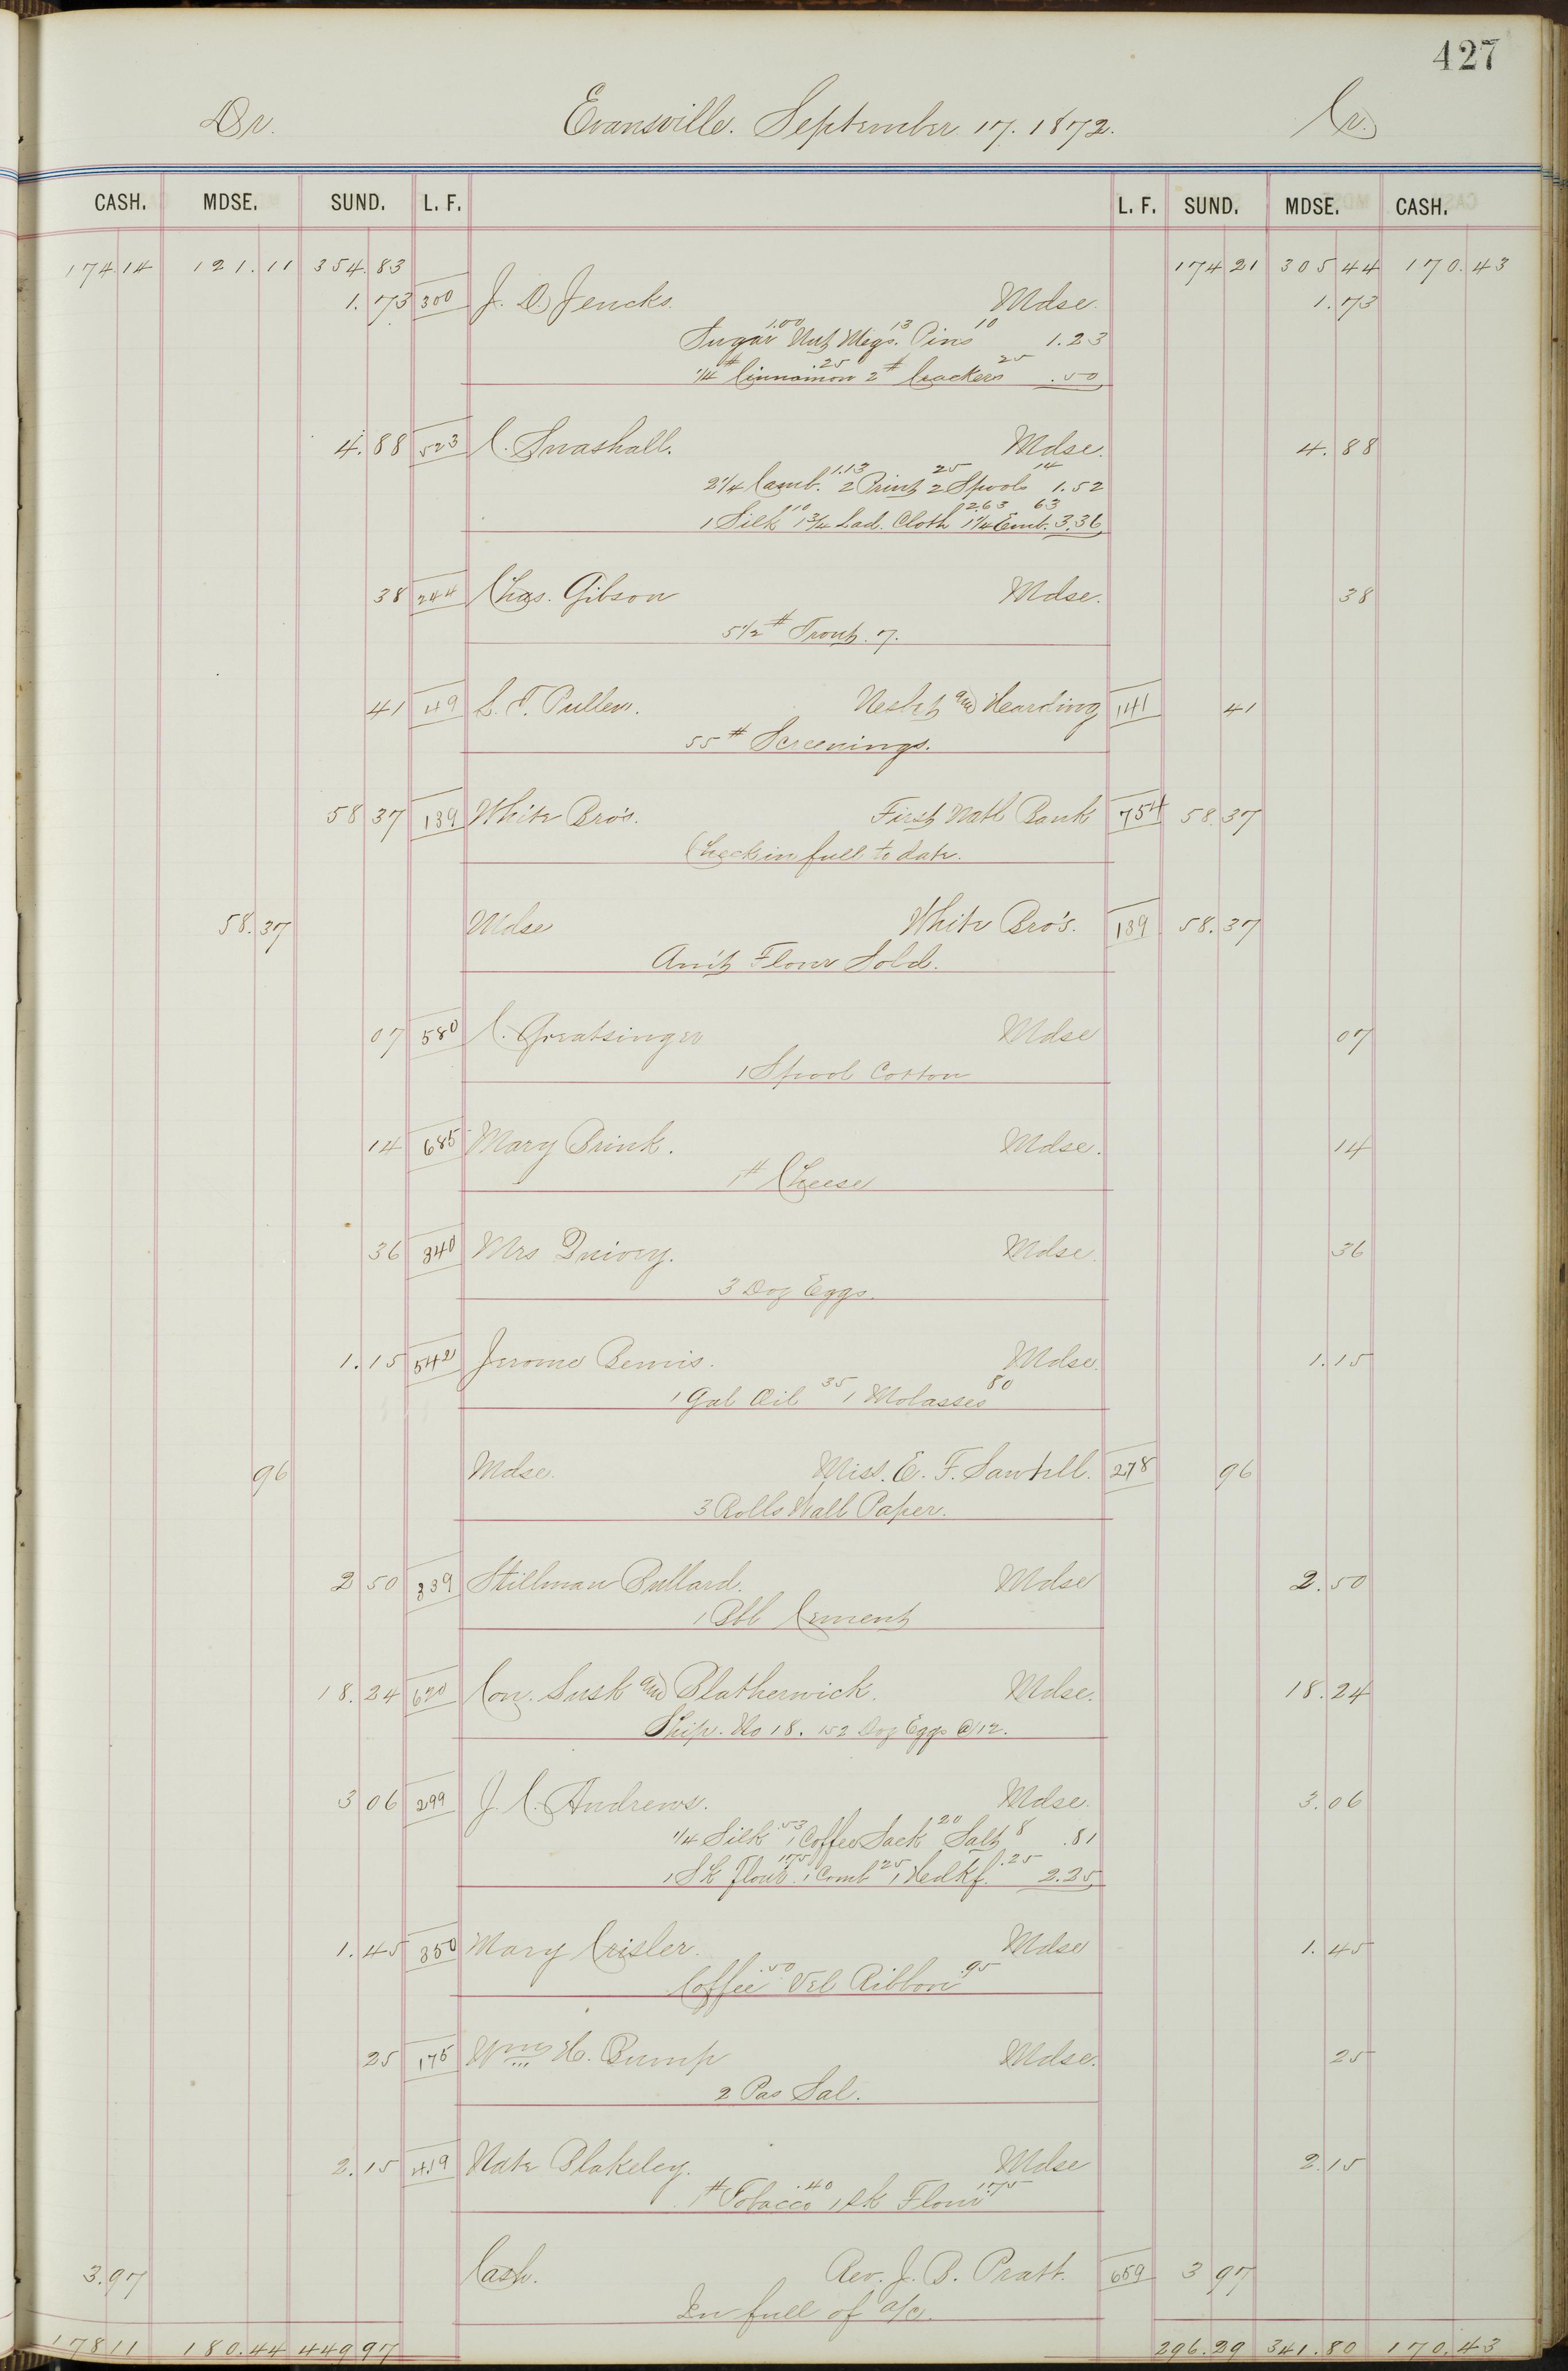 427
Dr. Evansville. September 17. 1872. Cr.
CASH. MDSE. SUND. L. F. L. F. SUND. MDSE. CASH.
174 14 121.11 354.83 174 21 305 44 170.43
1.73 300 J. D. Jencks Mdse. 1.73
Sugar 1.00 Nut Megs. 13 Pins 10 1.23
1/4 # Cinnamon .25 2 # Crackers 25 .50
4.88 523 C. Snashall. Mdse. 4.88
2 1/4 Camb. 1.13 2 Print 25 2 Spools 14 1.52
1 Silk 10 1 3/4 Lad. Cloth 2.63 1 1/4 Emb. 63 3.36
38 244 Chas. Gibson Mdse. 38
5 1/2 # Trout. 7.
41 49 L. T. Pullen. and Hearding 141 41
55 # Screenings.
58 37 139 White Bro's. First Natl Bank 754 58.37
Check in full to date.
58.37 Mdse White Bro's. 139 58.37
Am't Flour Sold.
07 580 C. Greatsinger Mdse 07
1 Spool Cotton
14 685 Mary Brink. Mdse. 14
1 # Cheese
36 340 Mrs Quivey. Mdse. 36
3 Doz Eggs.
1.15 542 Jerome Bemis. Mdse. 1.15
1 Gal Oil 35 1 Molasses 80
96 Mdse. Miss. E. F. Sawtell. 278 96
3 Rolls Wall Paper.
2 50 339 Stillman Bullard. Mdse 2.50
1 Bbl Cement
18.24 620 Con. Lusk and Blatherwick. Mdse. 18.24
Ship. No 18. 152 Doz Eggs @ 12.
3 06 299 J. C. Andrews. Mdse. 3.06
1/4 Silk .53 1 Coffee Sack 20 Salt 8 .81
1 Sk Flour 1.75 1 Comb 25 1 Hedkf. .25 2.25
1.45 350 Mary Crisler. Mdse 1.45
Coffee .50 Vel Ribbon .95
25 175 Wm H. Bump Mdse. 25
2 Pas Sal.
2.15 419 Nate Blakeley. Mdse 2.15
1 # Tobacco .40 1 Sk Flour 1.75
3.97 Cash. Rev. J. B. Pratt. 659 3 97
In full of a/c.
178 11 180.44 449 97 296.29 341.80 170.43